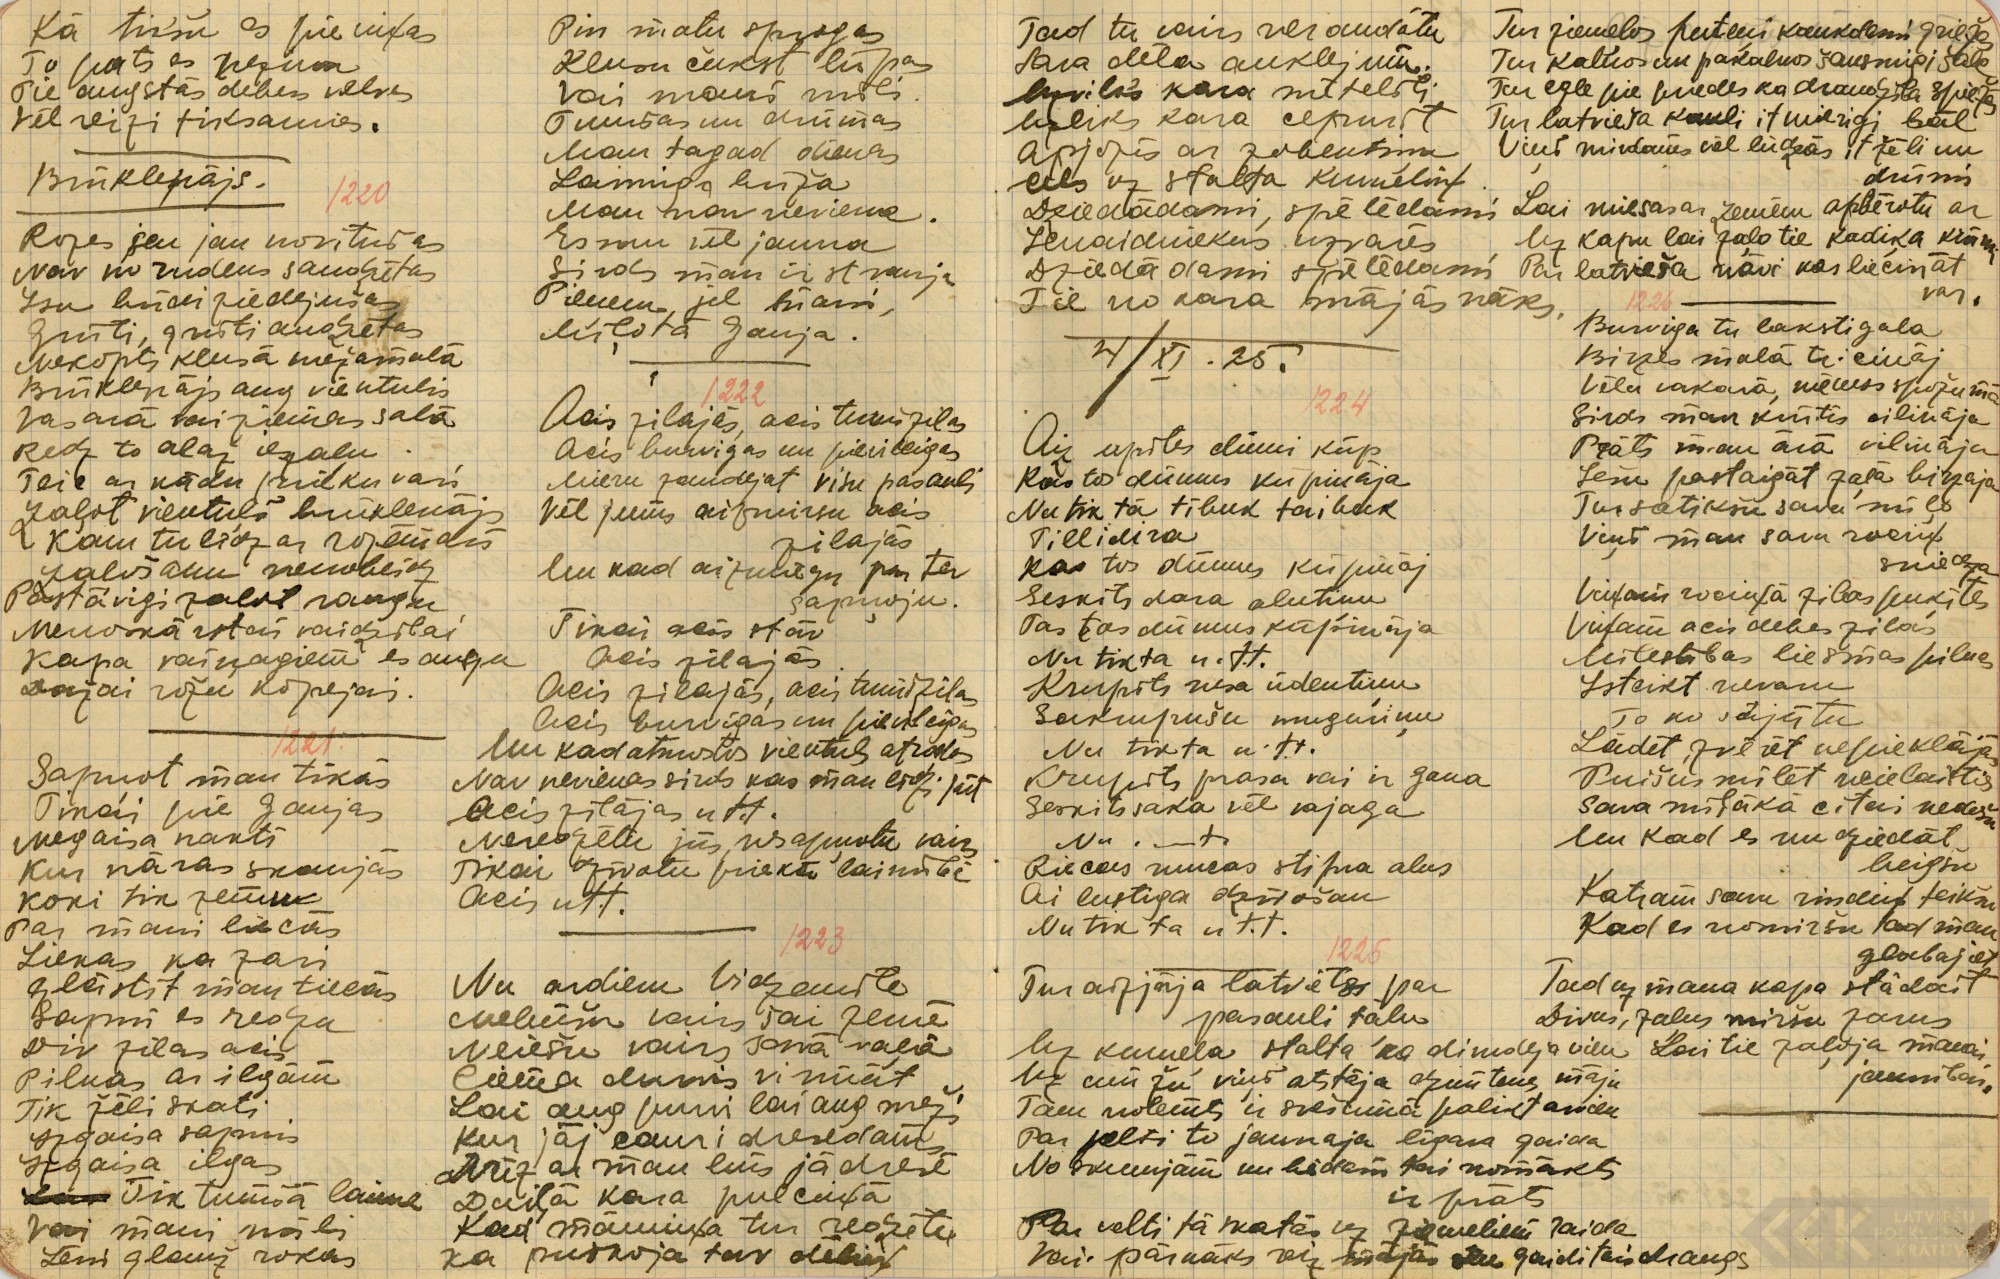 Kā tikšu es pie viņas
To pats es nezinu
Pie augstās debess velves
Vēl reizi tiksamies.
Brūklenājs.
1220
Rozes sen jau novītušas
Nav no rudens saudzētas
Īsu brīdi ziedējušas
Grūti, grūti audzētas
Nekopts klusā mežamalā
Brūklenājs aug vientulis
Vasarā vai ziemas salā
Redz to alaž iezaļu
Teic ar kādu prieku vari
Zaļot vientulš brūklenājs
Kam tu līdz ar rozēm
Zaļošanu nenobeidz
Pastāvīgi zaļot raugu
Nenoskārstai vaidzībai
Kapa vaiņagiem es augu
Daiļai rožu kopējai.
1221.
Sapņot man tikās
Tikai pie Gaujas
Megaisa naktī
Kur nāras skaujas
Koki tik zemu
Par mani liecās
Liekas ka zari
Glāstīt man tiecās
Sapnī es redzu
Div zilas acis
Pilnas ar ilgām
Tik žēli skati
Izgaisa sapnis
Izgaisa ilgas
Tik tumšā laimē
Vai mani mīli
Lēni glauž rokas
Pin matu sprogas
Klusu čukst lūpas
Vai mani mīli.
Tumšas un drūmas
Man tagad dienas
Laimīga brīža
Man nav neviena.
Esmu vēl jauna
Sirds man ir strauja
Pieņem jel mani,
Mīļotā Gauja.
1222
Acis zilajās, acis tumšzilas
Acis burvigas un pievilcigas
Mieru zaudējat visu pasauli
Vēl jums aizmirsu acis
zilajās
Un kad aizmiegu par tev
sapņoju.
Tikai acis stāv
Acis zilajās.
Acis zilajās, acis tumšzilas
Acis burvigas un pievilcigas
Un kad atmostos vientuļš atrodos
Nav nevienas sirds kas man līdzi jūt
Acis zilājas utt.
Neredzētu jūs, nesapņotu vairs
Tikai dzīvotu priekš laimības
Acis utt.
1223
Nu ardievu Vidzemīte
Nebūšu vairs šai zemē
Neiešu vairs savā vaļā
Ciema durvis virināt
Lai aug purvi lai aug meži
Kur jāj cauri dziedādams
Daiļā kara pulciņā
Kad māmiņa tur redzētu
Ka puškoja tav dēliņ
Tad tu vairs neraudātu
Sava dēla auklējum.
Uzvilks kara mētelīti
Uzliks kara cepurīt
Apjozīs ar zobentiņu
Cels uz stalta kumeliņ.
Dziedādami, spēlēdami
Ienaidniekus uzvarēs
Dziedādami spēlēdami
Tie no kara mājās nāks.
4/XI. 25.
1224
Aiz upītes dūmi kūp
Kas tos dūmus kūpināja
Nu tik tā tibuk taibuk
Tillidira
Kas tos dūmus kūpināj
Seskits dara alutiņu
Tas tos dūmus kūpināja
Nu tik ta u.t.t.
Krupīts nesa ūdentiņu
Sakumpušu muguriņu
Nu tik ta u.t.t.
Krupits prasa vai ir gana
Seskits saka vēl vajaga
Nu . —t
Riecas mucas stipra alus
Ai lustiga dzīvošan
Nu tik ta u.t.t.
1225
Tur aizjāja latvietis par
pasauli tālu
Uz kumeļa stalta ka dimdēja vien
Uz mūžu viņš atstāja dzimtenes māju
Tam nolemts ir svešumā palikt arvien
Par velti to jaunaja līgava gaida
No skumjām un bēdām tai nomākts
ir prāts
Par velti tā skatās uz ziemeļiem raida
Vai pārnāks reiz mājās gaidītais draugs
Tur ziemeļos puteņi kaukdami griežas
Tur kalnos un pakalnos šausmīgi salc
Tur egle pie priedes ka draudzība spiežas
Tur latvieša kauli it mierigi bāl
Viņš mirdams vēl lūdzās it žēli un
drūmi
Lai miesas ar zemēm apbērotu ar
Uz kapu lai zaļo tie kadiķa krūmi
Par latvieša nāvi kas liecināt
var.
1226
Burviga tu lakstigala
Birzes malā tricināj
Vēlu vakarā, mēness spožumā
Sirds man krūtīs cilināja
Prāts man ārā vilināja
Iešu pastaigāt zaļā birzāja
Tur satikšu savu mīļo
Viņš man savu rociņ
sniedza
Viņam rociņā zilas puķītes
Viņam acis debes zilas
Mīlestības liesmas pilnas
Isteikt nevaru
To ko sajūtu
Lādēt, zvērēt nepieklājās
Puišus mīlēt neielaistis
Sava mīļākā citai nedošu
Un kad es nu dziedāt
beigšu
Katram savu rindiņ teikšu
Kad es nomiršu tad man
glabājiet
Tad uz mana kapa stādait
Divus, zaļus miršu zarus
Lai tie zaļoja manai
jaunībai.